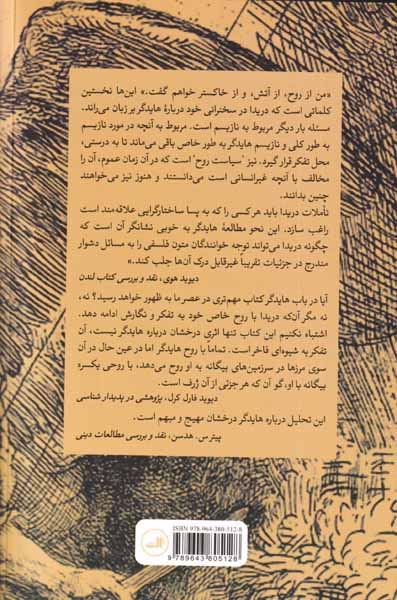 «من از روح، از آتش، و از خاکستر خواهم گفت.» این‌ها نخستین
کلماتی است که دریدا در سخنرانی خود دربارهٔ هایدگر بر زبان می‌راند.
مسئله بار دیگر مربوط به نازیسم است. مربوط به آنچه در مورد نازیسم
به طور کلی و نازیسم هایدگر به طور خاص باقی می‌ماند تا به درستی،
محل تفکر قرار گیرد، نیز "سیاست روح" است که در آن زمان عموم، آن را
مخالف با آنچه غیرانسانی است می‌دانستند و هنوز نیز می‌خواهند
چنین بدانند.
تأملات دریدا باید هر کسی را که به پسا ساختارگرایی علاقه‌مند است
راغب سازد. این نحو مطالعهٔ هایدگر به خوبی نشانگر آن است که
چگونه دریدا می‌تواند توجه خوانندگان متون فلسفی را به مسائل دشوار
مندرج در جزئیات تقریباً غیرقابل درک آن‌ها جلب کند.»
دیوید هوی، نقد و بررسی کتاب لندن
آیا در باب هایدگر کتاب مهم‌تری در عصر ما به ظهور خواهد رسید؟ نه،
نه مگر آن‌که دریدا با روح خاص خود به تفکر و نگارش ادامه دهد.
اشتباه نکنیم این کتاب تنها اثری درخشان درباره هایدگر نیست، آن
تفکر به شیوه‌ای فاخر است. تماماً با روح هایدگر اما در عین حال در آن
سوی مرزها در سرزمین‌های بیگانه به او روح می‌دهد، با روحی یکسره
بیگانه با او، گو آن که هر جزئی از آن ژرف است.
دیوید فارل کرل، پژوهشی در پدیدارشناسی
این تحلیل درباره هایدگر درخشان مهیج و مبهم است.
پیتر س. هدسن، نقد و بررسی مطالعات دینی
ISBN 978-964-380-512-8
9 789643 805128